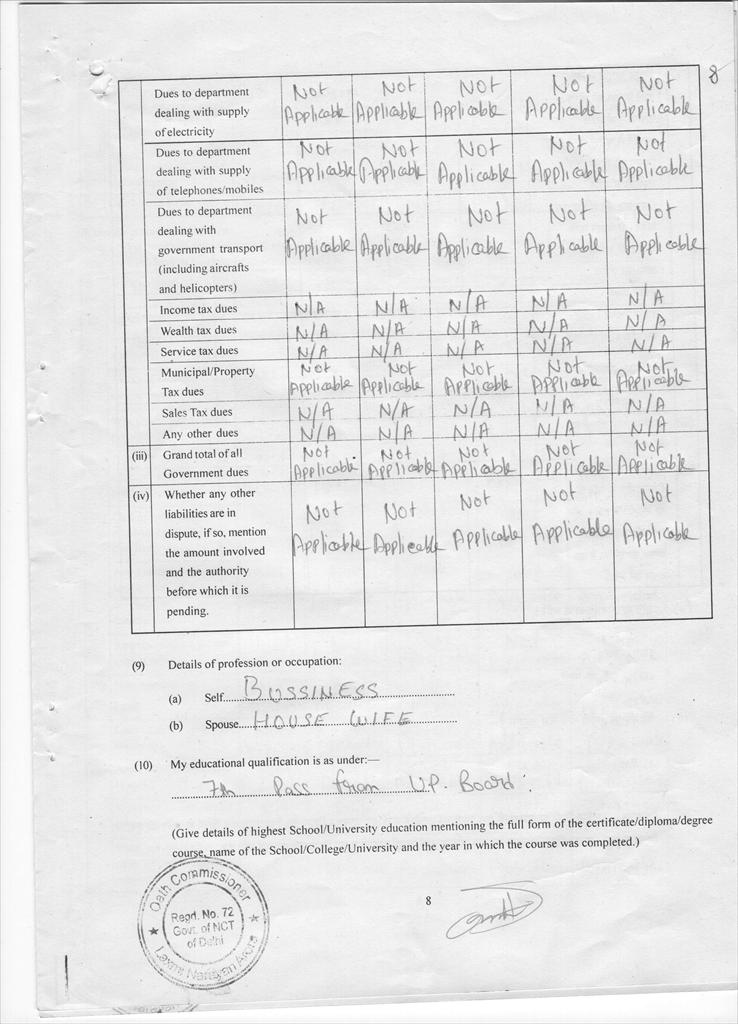 8
Dues to department Not Not Not Not Not
dealing with supply Applicable Applicable Applicable Applicable Applicable
of electricity
Dues to department Not Not Not Not Not
dealing with supply Applicable Applicable Applicable Applicable Applicable
of telephones/mobiles
Dues to department
dealing with Not Not Not Not Not
government transport Applicable Applicable Applicable Applicable Applicable
(including aircrafts
and helicopters)
Income tax dues N/A N/A N/A N/A N/A
Wealth tax dues N/A N/A N/A N/A N/A
Service tax dues N/A N/A N/A N/A N/A
Municipal/Property Not Not Not Not Not
Tax dues Applicable Applicable Applicable Applicable Applicable
Sales Tax dues N/A N/A N/A N/A N/A
Any other dues N/A N/A N/A N/A N/A
(iii) Grand total of all Not Not Not Not Not
Government dues Applicable Applicable Applicable Applicable Applicable
(iv) Whether any other
liabilities are in Not Not Not Not Not
dispute, if so, mention
the amount involved Applicable Applicable Applicable Applicable Applicable
and the authority
before which it is
pending.
(9) Details of profession or occupation:
(a) Self BUSSINESS
(b) Spouse HOUSE WIFE
(10) My educational qualification is as under:—
7th Pass from U.P. Board.
(Give details of highest School/University education mentioning the full form of the certificate/diploma/degree
course, name of the School/College/University and the year in which the course was completed.)
Oath Commissioner
Regd. No. 72
Govt. of NCT
of Delhi
Laxmi Narayan Arora
8